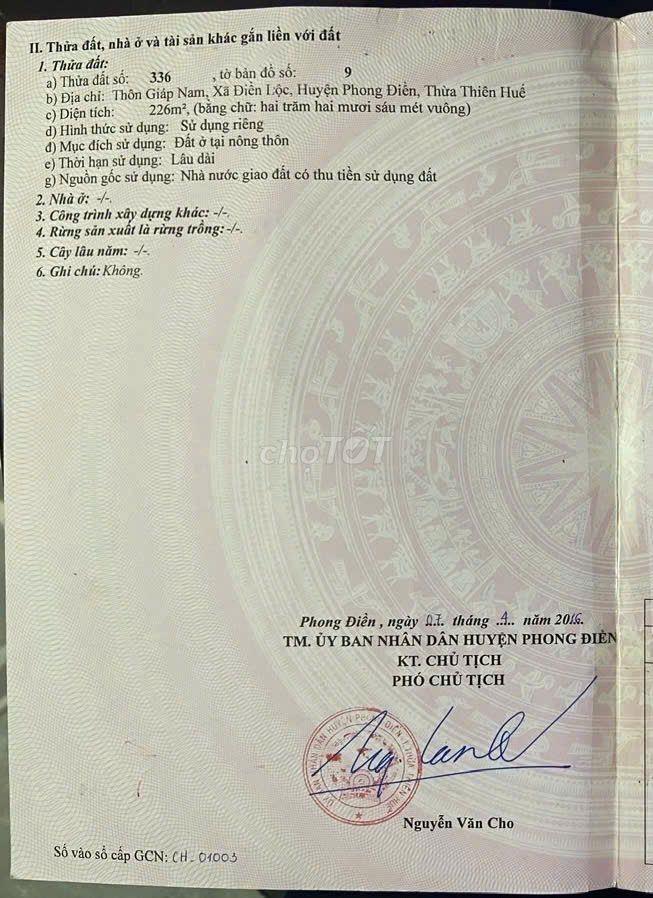 II. Thửa đất, nhà ở và tài sản khác gắn liền với đất
1. Thửa đất:
a) Thửa đất số: 336 , tờ bản đồ số: 9
b) Địa chỉ: Thôn Giáp Nam, Xã Điền Lộc, Huyện Phong Điền, Thừa Thiên Huế
c) Diện tích: 226m², (bằng chữ: hai trăm hai mươi sáu mét vuông)
d) Hình thức sử dụng: Sử dụng riêng
đ) Mục đích sử dụng: Đất ở tại nông thôn
e) Thời hạn sử dụng: Lâu dài
g) Nguồn gốc sử dụng: Nhà nước giao đất có thu tiền sử dụng đất
2. Nhà ở: -/-.
3. Công trình xây dựng khác: -/-.
4. Rừng sản xuất là rừng trồng: -/-.
5. Cây lâu năm: -/-.
6. Ghi chú: Không.
choTOT
Phong Điền , ngày 07 tháng .1.. năm 2016.
TM. ỦY BAN NHÂN DÂN HUYỆN PHONG ĐIỀN
KT. CHỦ TỊCH
PHÓ CHỦ TỊCH
ỦY BAN NHÂN DÂN HUYỆN PHONG ĐIỀN - T.THỪA THIÊN HUẾ
Nguyễn Văn Cho
Số vào sổ cấp GCN: CH-01003